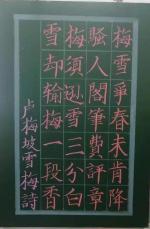 梅雪爭春未肯降
騷人閣筆費評章
梅須遜雪三分白
雪却输梅一段香
卢梅坡雪梅詩